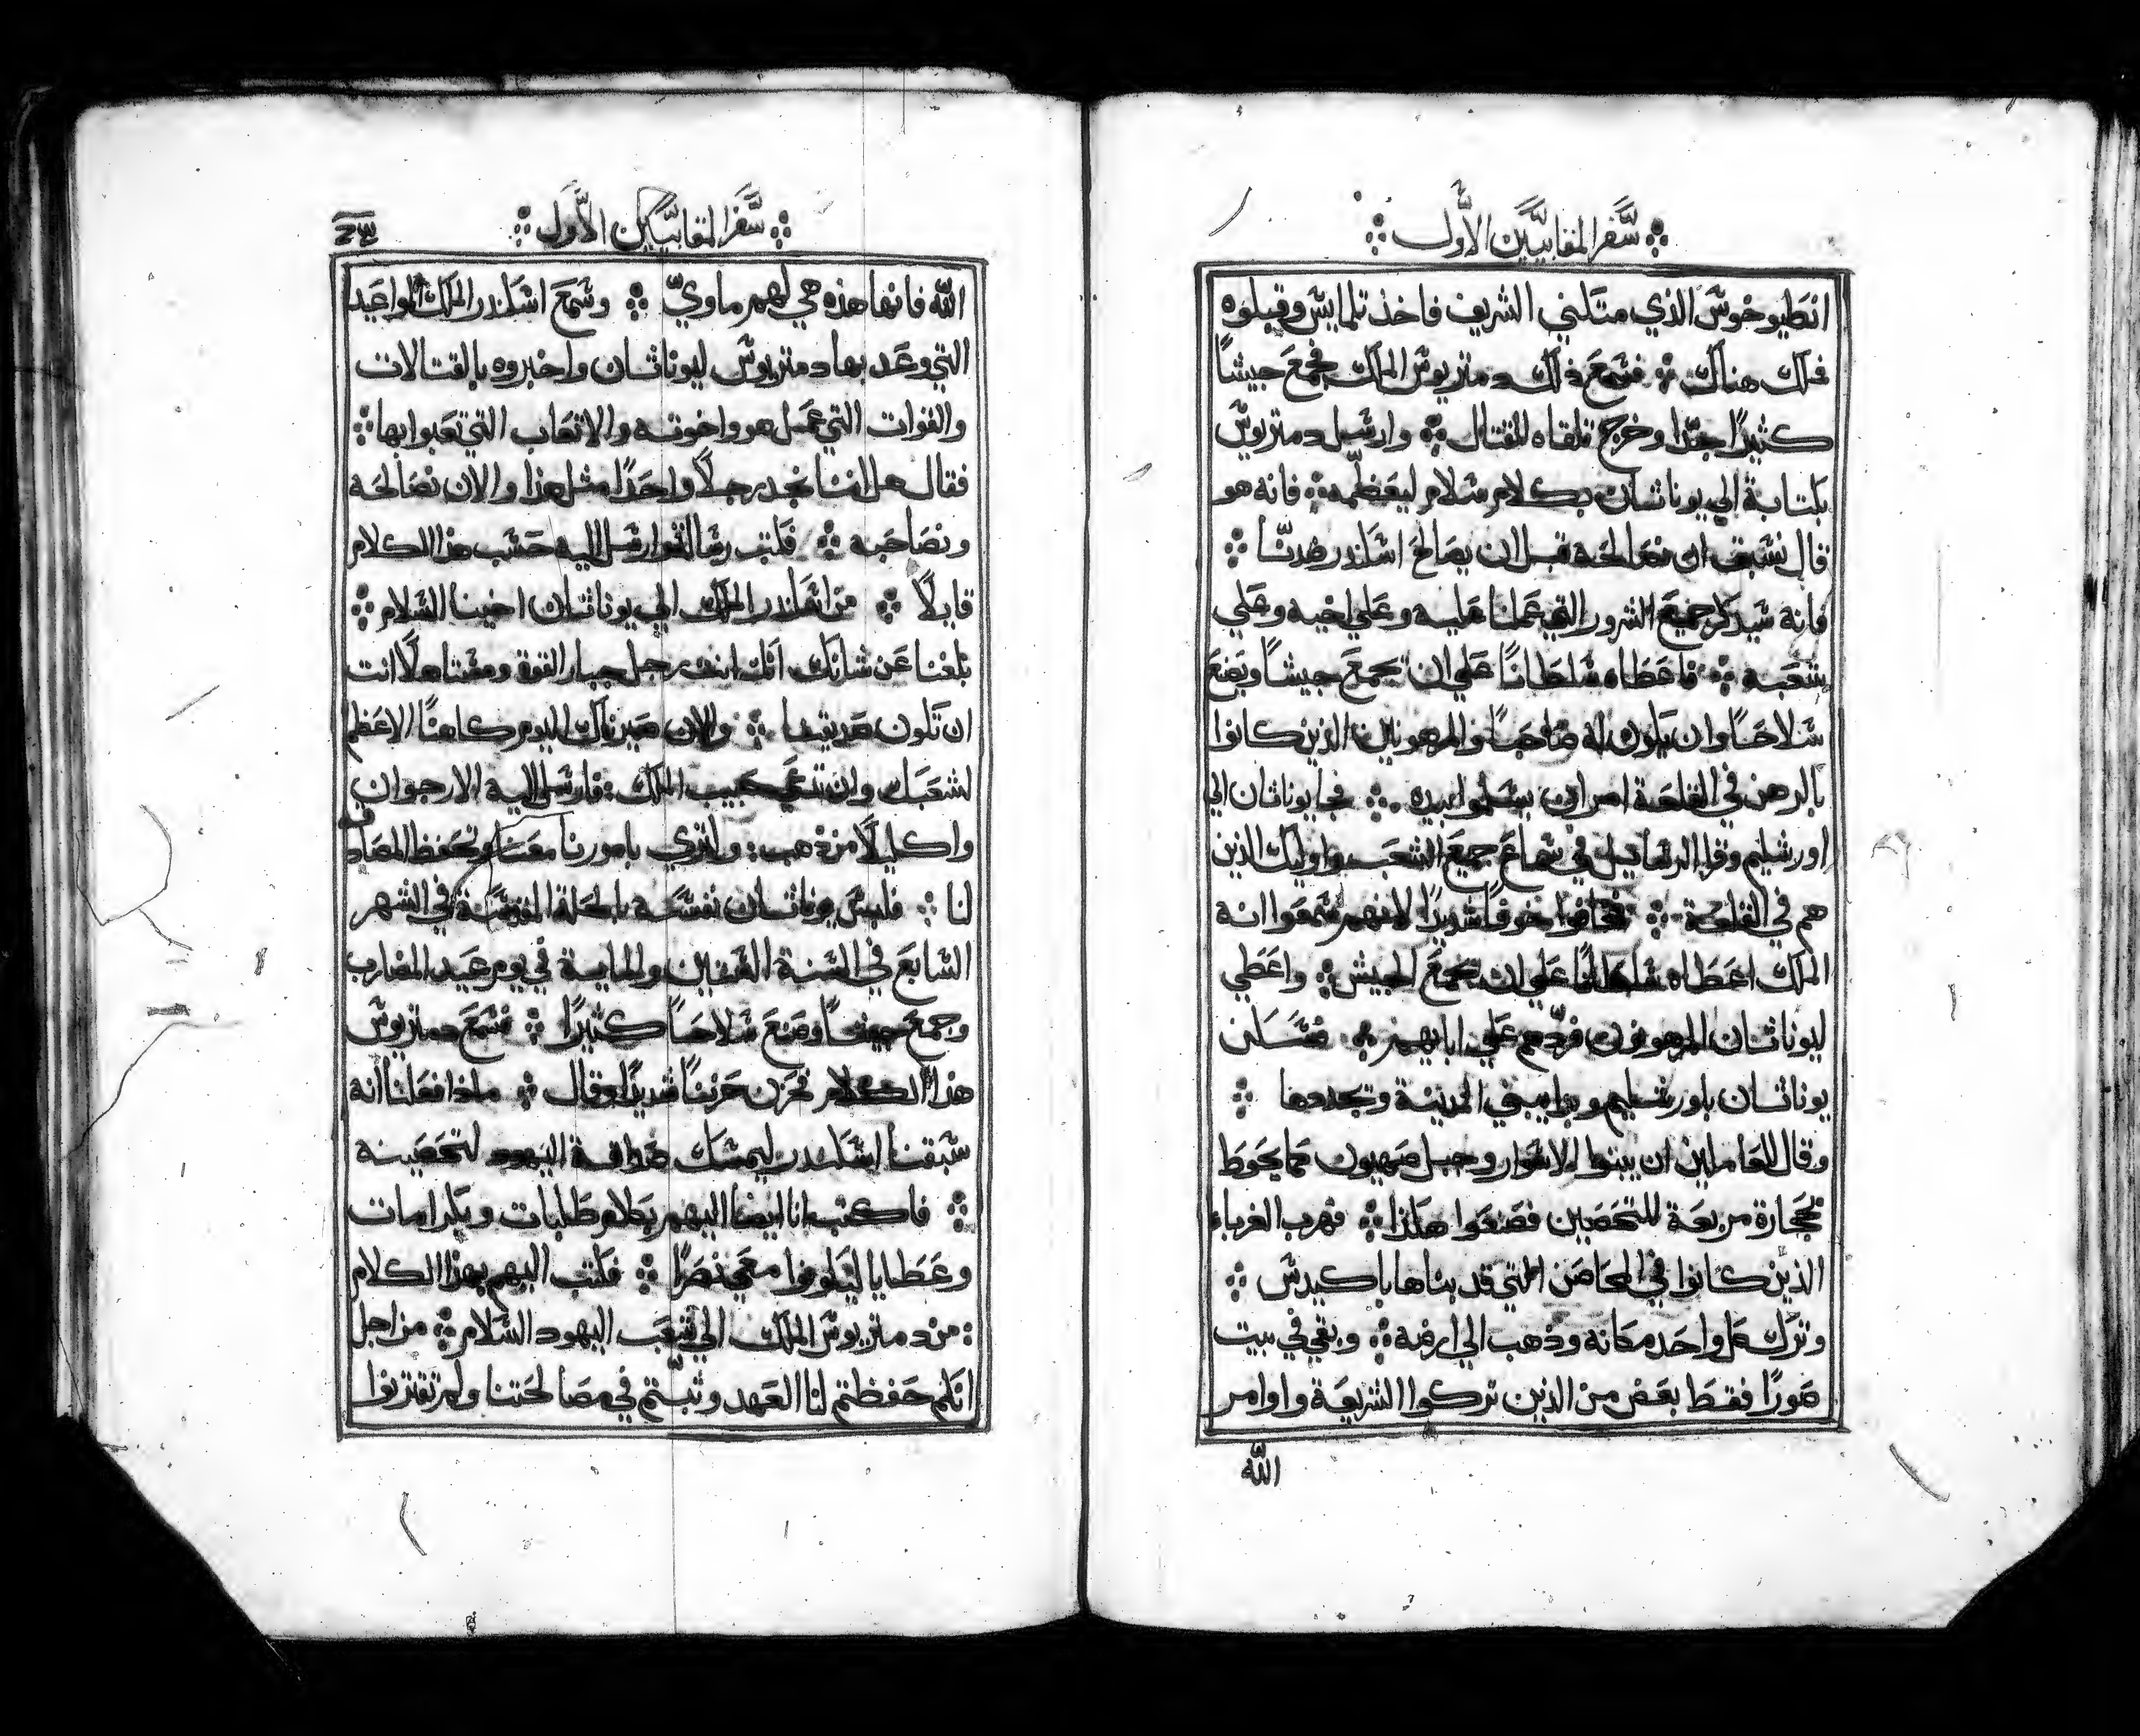 سفر المقابيين الاول
انطيوخوس الذي متكني الشريف فاخذ تلمايس وقبلوه
فملك هناك فسمع ذلك دمتريوس الملك فجمع جيشًا
كثيرًا جدًا وخرج تلقاه للقتال وارسل دمتريوس
بكتابة الي يوناثان بكلام سلام ليعظمه فانه هو
قال نسبق ان نصالحه قبل ان يصالح اسكندر ضدنا
فانه سيذكر جميع الشرور التي عملنا عليه وعلي اخيه وعلي
شعبه فاعطاه سلطانًا علي ان يجمع جيشًا ويصنع
سلاحًا وان يكون له صاحبًا والمرهونين الذين كانوا
بالرهن في القلعة امر ان يسلموا بيده فجا يوناثان الي
اورشليم وقرا الرسايل في سماع جميع الشعب واوليك الذين
هم في القلعة فخافوا خوفًا شديدًا لانهم سمعوا انه
الملك اعطاه سلطانًا علي ان يجمع الجيش واعطي
ليوناثان المرهونون فردهم علي ابايهم فسكن
يوناثان باورشليم وبدا يبني المدينة وتجددها
وقال للعاملين ان يبنوا الاسوار وجبل صهيون كما يحوط
بحجارة مربعة للتحصين فصنعوا هكذا فهرب الغرباء
الذين كانوا في المحاصن التي قد بناها باكيدس
وترك كل واحد مكانه وذهب الي ارضه وبقي في بيت
صورًا فقط بعض من الذين تركوا الشريعة واوامر
الله
سفر المقابيين الاول
الله فانها هذه هي لهم ماوي وسمع اسكندر الملك المواعيد
التي وعد بها دمتريوس ليوناثان واخبروه بالقتالات
والقوات التي عمل هو واخوته والاتعاب التي تعبوا بها
فقال هل اننا نجد رجلًا واحدًا مثل هذا والان نصالحه
ونصاحبه فكتب رسالة وارسل اليه حسب هذا الكلام
قايلًا من اسكندر الملك الي يوناثان اخينا السلام
بلغنا عن شانك انك انت رجل جبار القوة ومستاهلًا انت
ان تكون صديقنا والان صيرناك اليوم كاهنًا الاعظم
لشعبك وان تدعي حبيب الملك فارسل اليه الارجوان
واكليلًا من ذهب ولتري بامورنا معنا وتحفظ المصادف
لنا فلبس يوناثان نفسه بالحلة المقدسة في الشهر
السابع في السنة الستين والماية في يوم عيد المضارب
وجمع جيشًا وصنع سلاحًا كثيرًا فسمع دمتريوس
هذا الكلام فحزن حزنًا شديدًا وقال ماذا فعلنا انه
سبقنا اسكندر ليمسك صداقة اليهود لتحصينه
فاكتب انا ايضا اليهم بكلام طلبات وبكرامات
وعطايا ليكونوا معي نصرًا فكتب اليهم بهذا الكلام
من دمتريوس الملك الي شعب اليهود السلام من اجل
انكم حفظتم لنا العهد وثبتم في مصالحتنا ولم تقتربوا